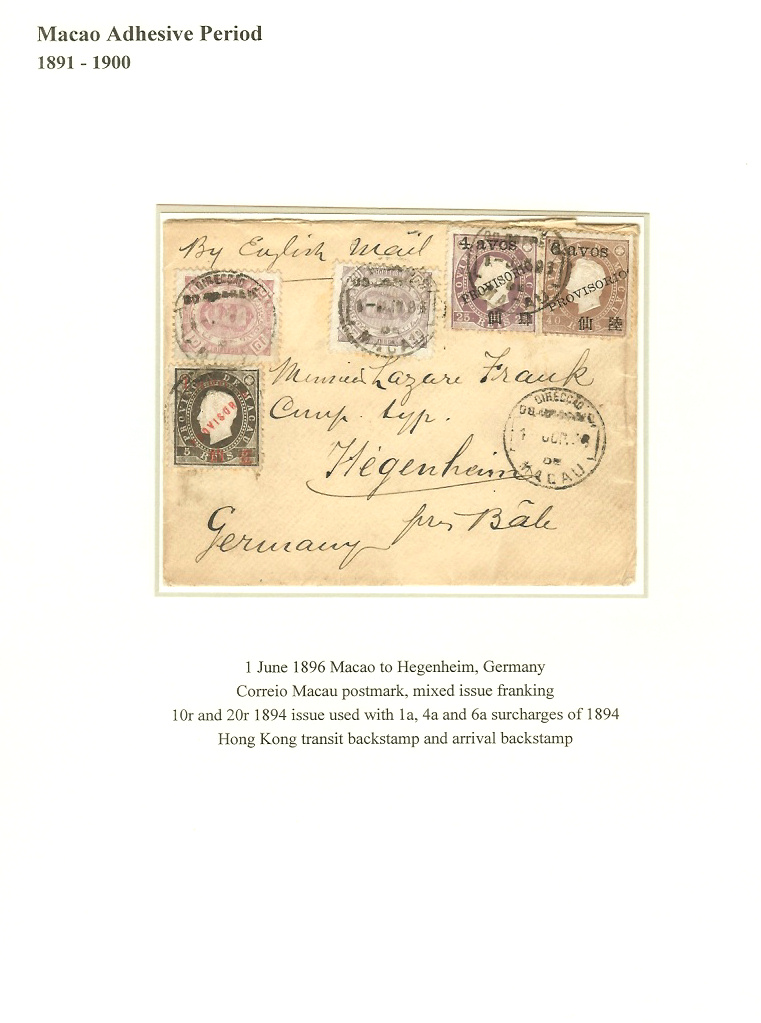 Macao Adhesive Period
1891 - 1900
By English Mail
4 avos
PROVISORIO
25 REIS
仙
6 avos
PROVISORIO
40
仙 陸
DIRECÇÃO
DE
MACAU
PROVINCIA DE MACAU
5 REIS
Lazare Frank
Comp. typ.
Hégenheim
près Bâle
Germany
DIRECÇÃO
1 JUN
DE
MACAU
1 June 1896 Macao to Hegenheim, Germany
Correio Macau postmark, mixed issue franking
10r and 20r 1894 issue used with 1a, 4a and 6a surcharges of 1894
Hong Kong transit backstamp and arrival backstamp